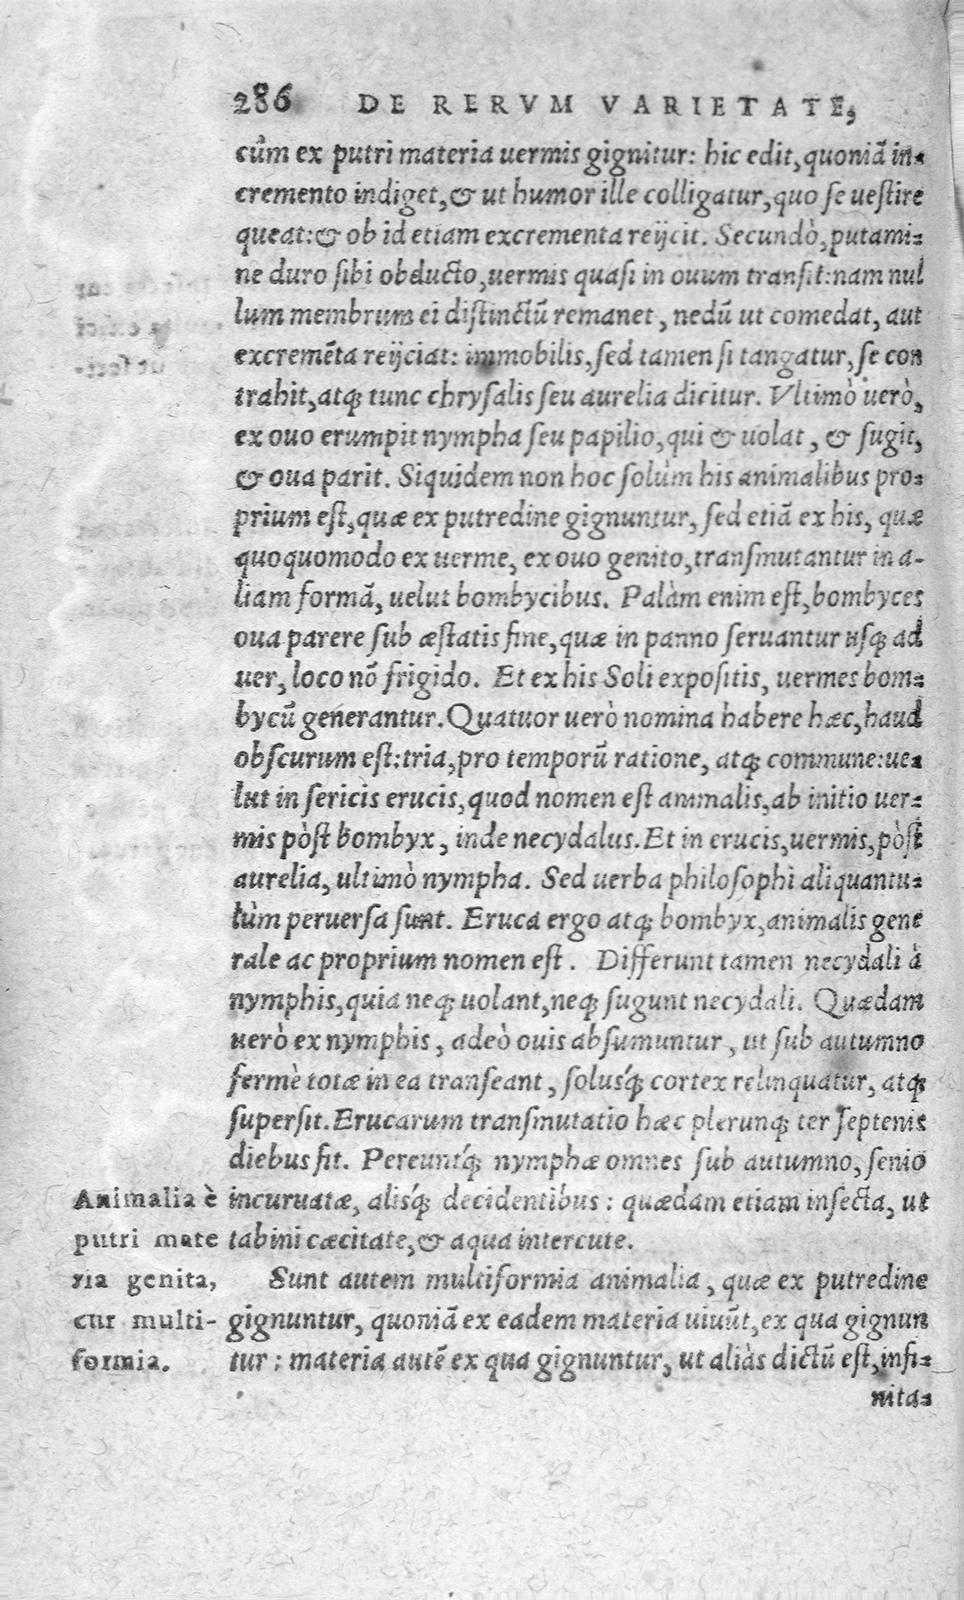 286 DE RERVM VARIETATE,
cùm ex putri materia uermis gignitur: hic edit, quoniã in-
cremento indiget, & ut humor ille colligatur, quo se uestire
queat: & ob id etiam excrementa reijcit. Secundò, putami-
ne duro sibi obducto, uermis quasi in ouum transit: nam nul
lum membrum ei distinctũ remanet, nedũ ut comedat, aut
excremẽta reijciat: immobilis, sed tamen si tangatur, se con
trahit, atq; tunc chrysalis seu aurelia dicitur. Vltimò uerò,
ex ouo erumpit nympha seu papilio, qui & uolat, & sugit,
& oua parit. Siquidem non hoc solùm his animalibus pro-
prium est, quæ ex putredine gignuntur, sed etiã ex his, quæ
quoquomodo ex uerme, ex ouo genito, transmutantur in a-
liam formã, uelut bombycibus. Palàm enim est, bombyces
oua parere sub æstatis fine, quæ in panno seruantur usq; ad
uer, loco nõ frigido. Et ex his Soli expositis, uermes bom-
bycũ generantur. Quatuor uerò nomina habere hæc, haud
obscurum est: tria, pro temporũ ratione, atq; commune: ue-
lut in sericis erucis, quod nomen est animalis, ab initio uer-
mis pòst bombyx, inde necydalus. Et in erucis, uermis, pòst
aurelia, ultimò nympha. Sed uerba philosophi aliquantu-
lùm peruersa sunt. Eruca ergo atq; bombyx, animalis gene
rale ac proprium nomen est. Differunt tamen necydali à
nymphis, quia neq; uolant, neq; sugunt necydali. Quædam
uerò ex nymphis, adeò ouis absumuntur, ut sub autumno
fermè totæ in ea transeant, solusq́; cortex relinquatur, atq;
supersit. Erucarum transmutatio hæc plerunq; ter septenis
diebus fit. Pereuntq́; nymphæ omnes sub autumno, senio
incuruatæ, alisq́; decidentibus: quædam etiam insecta, ut
tabini cæcitate, & aqua intercute.
Animalia è
putri mate
ria genita,
cur multi-
formia.
Sunt autem multiformia animalia, quæ ex putredine
gignuntur, quoniã ex eadem materia uiuũt, ex qua gignun
tur: materia autẽ ex qua gignuntur, ut aliàs dictũ est, infi-
nita-